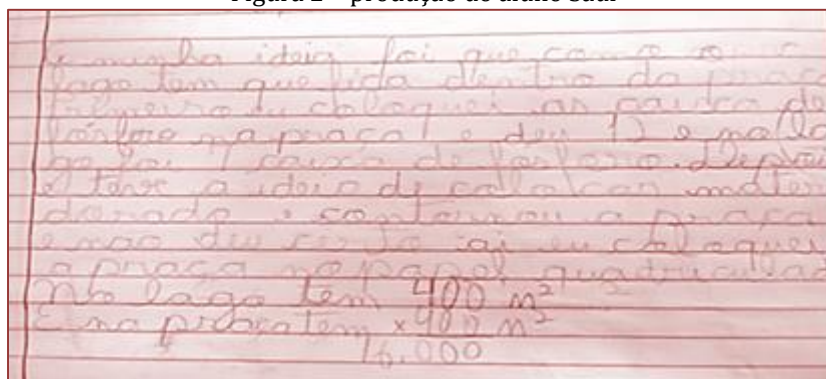 a minha ideia foi que como o
lago tem que fica dentro da praça
primeiro eu coloquei as caixa de
fósforo na praça e deu 12 e no la
go foi 1 caixa de fosforo. Depois
e teve a ideia de colocar
dorado e contornou a praça
e nao deu certo ai eu coloquei
a praça no papel quadriculad
No lago tem 400 m²
E na praça tem × 400 m²
16.000